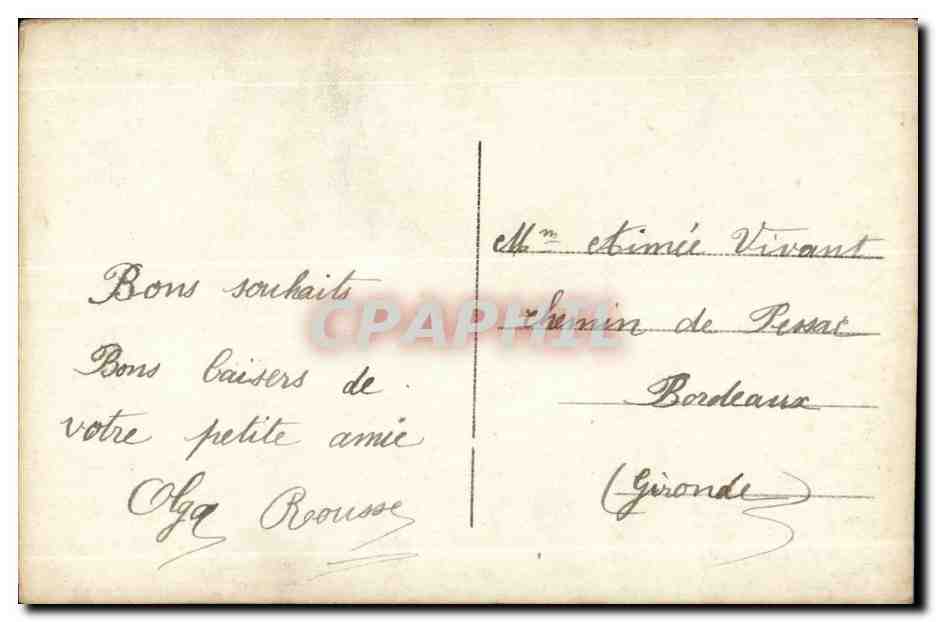 Bons souhaits
Bons baisers de
votre petite amie
Olga Rousse
Mm Aimée Vivant
chemin de Pessac
Bordeaux
(Gironde)
CPAPHIL